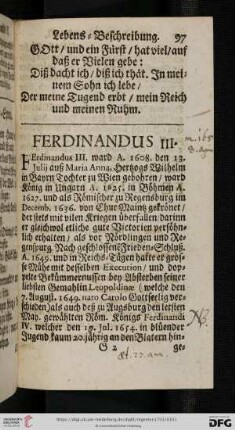 Lebens-Beschreibung. 97
GOtt / und ein Fürst / hat viel / auf
daß er Vielen gebe:
Diß dacht ich / diß ich thät. In mei-
nem Sohn ich lebe /
Der meine Tugend erbt / mein Reich
und meinen Ruhm.
FERDINANDUS III.
FErdinandus III. ward A. 1608. den 13.
Julij auß Maria Anna, Hertzogs Wilhelm
in Bayrn Tochter zu Wien gebohren / ward
König in Ungarn A. 1625. in Böhmen A.
1627. und als Römischer zu Regensburg im
Decemb. 1636. von Chur Maintz gekrönet /
der stets mit vilen Kriegen überfallen darinn
er gleichwol etliche gute Victorien persön-
lich erhalten / als vor Nördlingen und Re-
genspurg. Nach geschlossen Frieden-Schluß
A. 1649. und in Reichs-Tägen hatte er gros-
se Mühe mit desselben Execution / und dop-
pelte Bekümmernussen bey Absterben seiner
liebsten Gemahlin Leopoldinæ (welche den
7. August. 1649. nato Carolo Gott seelig ver-
schieden) als auch deß zu Augsburg den letzten
May. gewählten Röm. Königs Ferdinandi
IV. welcher den 19. Jul. 1654. in blüender
Jugend kaum 20. jährig an den Blatern hin-
G 2 ge-
NB.